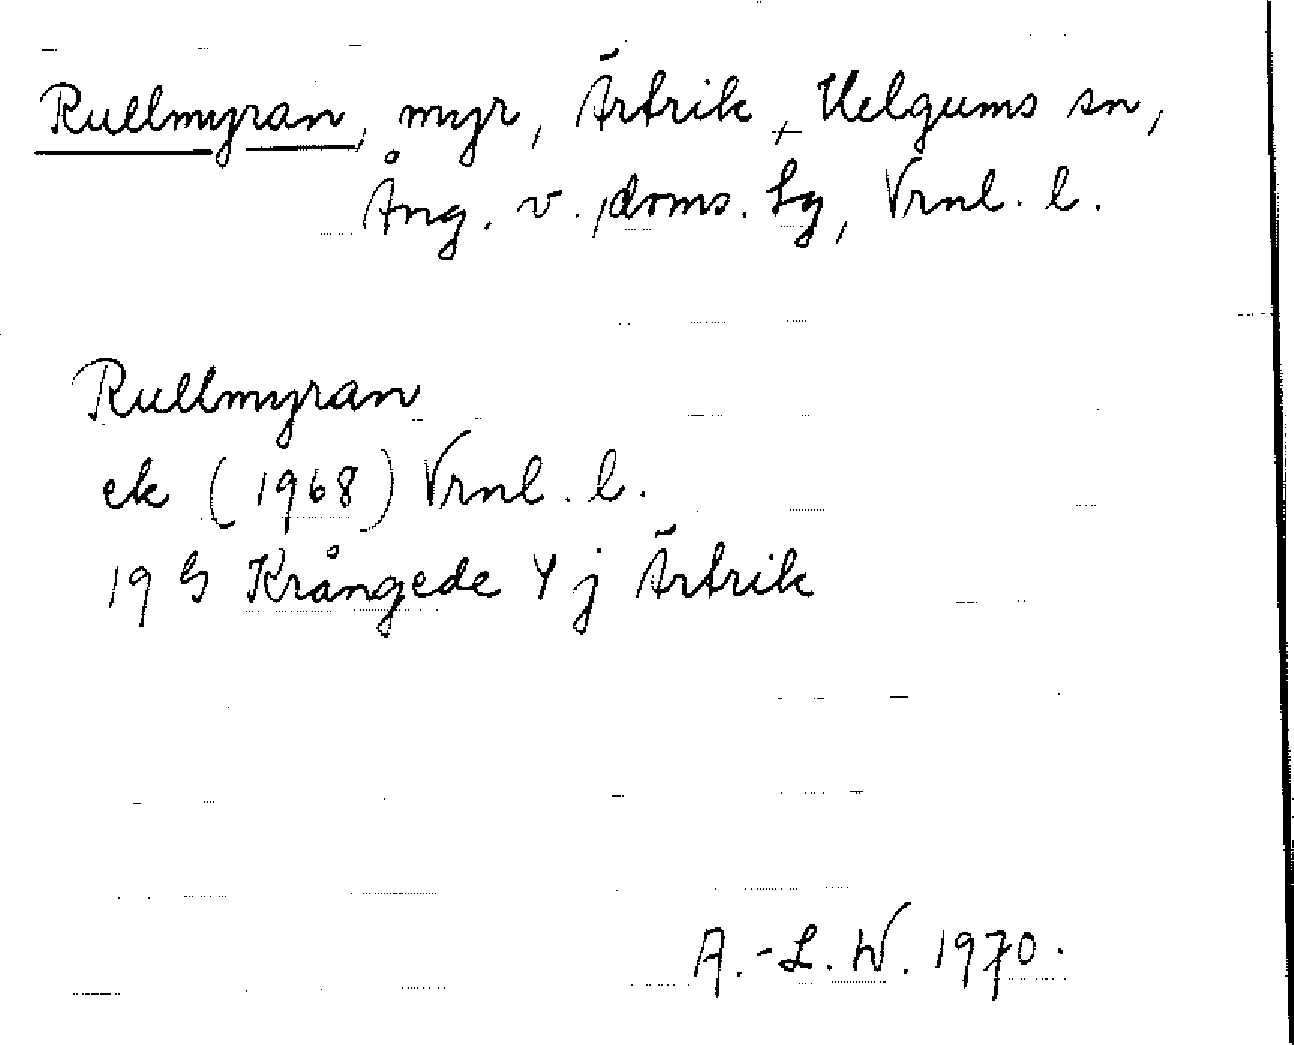 Rullmyran, myr, Ärtrik, Helgums sn,
Ång. v. doms. Lg, Vrnl. l.
Rullmyran
ek (1968) Vrnl. l.
19 G Krångede 4 j Ärtrik
A.-L. W. 1970.